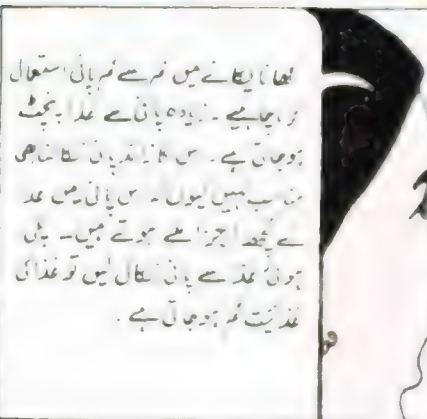 کھانا پکانے میں کم سے کم پانی استعمال
کرنا چاہیے۔ زیادہ پانی سے غذا پنجٹ
ہوجاتی ہے۔ اس کا زائد پانی نکالنا بھی
مناسب نہیں کیوں کہ اس پانی میں غذا
کے کچھ اجزا ملے ہوتے ہیں۔ پکی
ہوئی غذا سے پانی نکال لیں تو غذا کی
غذائیت کم ہوجاتی ہے۔